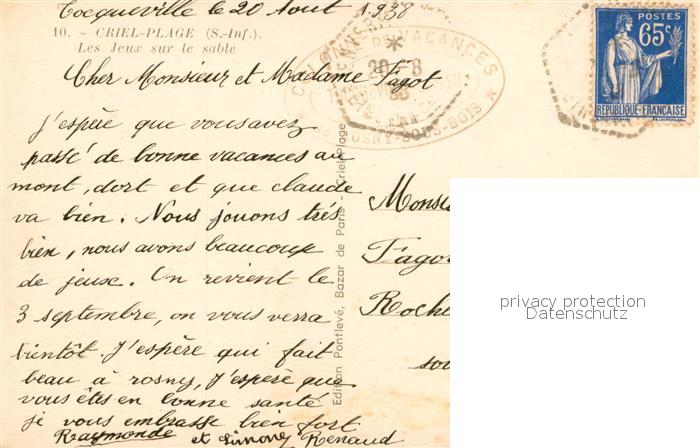 Tocqueville le 20 Aout 1938
10. - CRIEL-PLAGE (S.-Inf.).
Les Jeux sur le sable
Cher Monsieur et Madame Fagot
J'espère que vous avez
passé de bonne vacances au
mont, dort et que claude
va bien. Nous jouons trés
bien, nous avons beaucoup
de jeux. On revient le
3 septembre, on vous verra
bientôt. J'espère qui fait
beau à rosny, J'espère que
vous êtes en bonne santé
je vous embrasse bien fort
Raymonde et Simone Renaud
Edition Pontlevé, Bazar de Paris - Criel-Plage
DE VACANCES
ROSNY-SOUS-BOIS
20-8
38
POSTES
65c
REPUBLIQUE FRANÇAISE
Monsi
Fagot
Roche
sou
privacy protection
Datenschutz